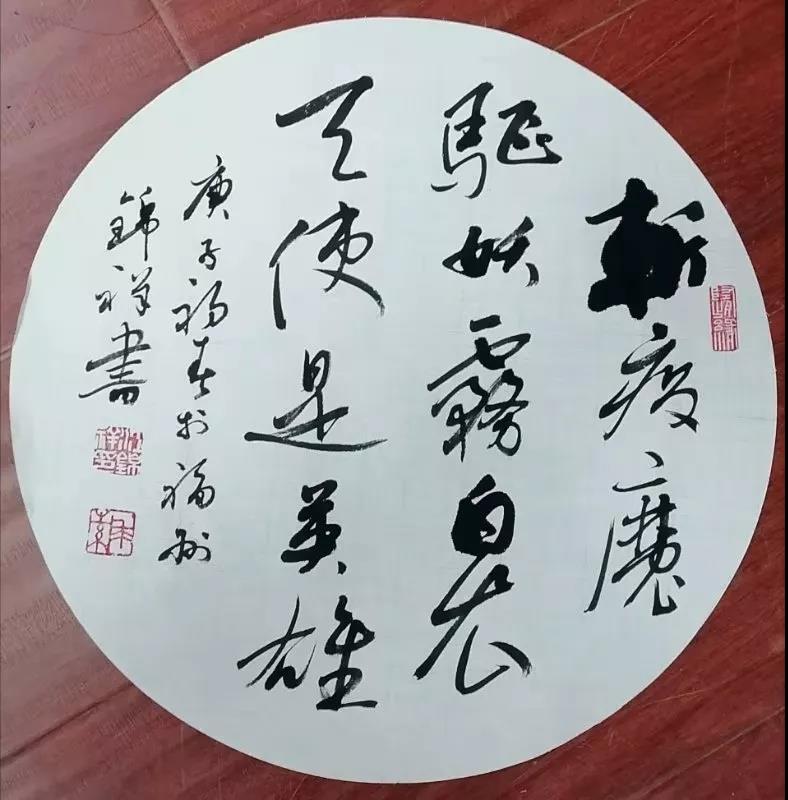 斬疫魔
驅妖霧白衣
天使是英雄
庚子初春於福州
錦祥書